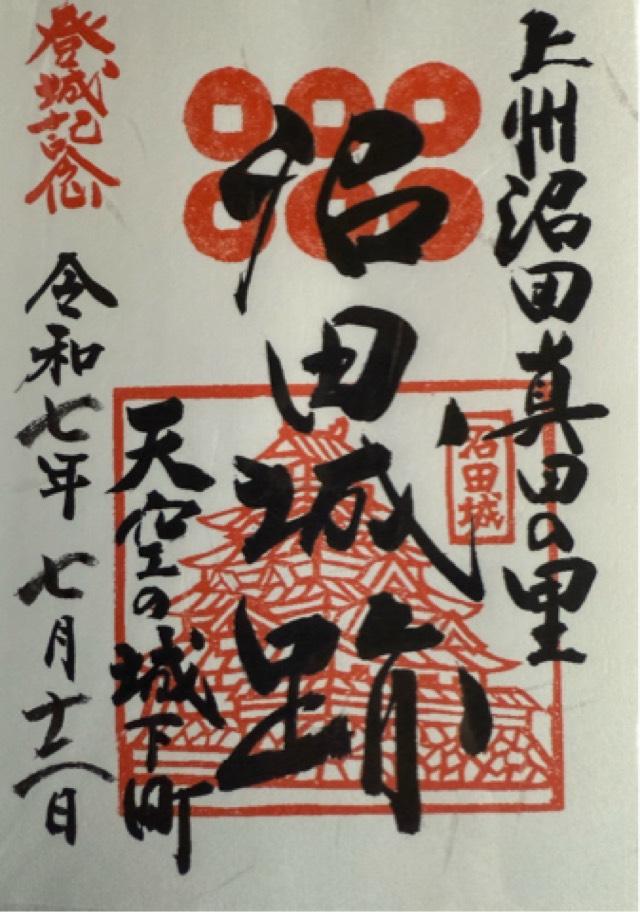 上州沼田真田の里
沼田城跡
沼田城
天空の城下町
登城記念
令和七年 七月十日